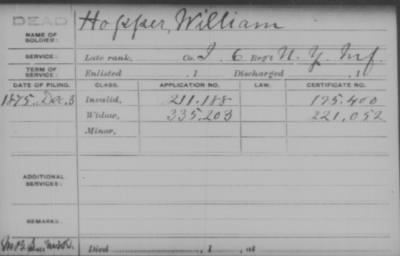 DEAD
NAME OF SOLDIER: Hopper, William
SERVICE: Late rank, Co. I, 6 Reg't N. Y. Inf.
TERM OF SERVICE: Enlisted , 1 Discharged , 1
DATE OF FILING. CLASS. APPLICATION NO. LAW. CERTIFICATE NO.
1875, Dec. 3 Invalid, 211.188 175.400
Widow, 335.203 221.052
Minor,
ADDITIONAL SERVICES:
REMARKS:
Died , 1 , at